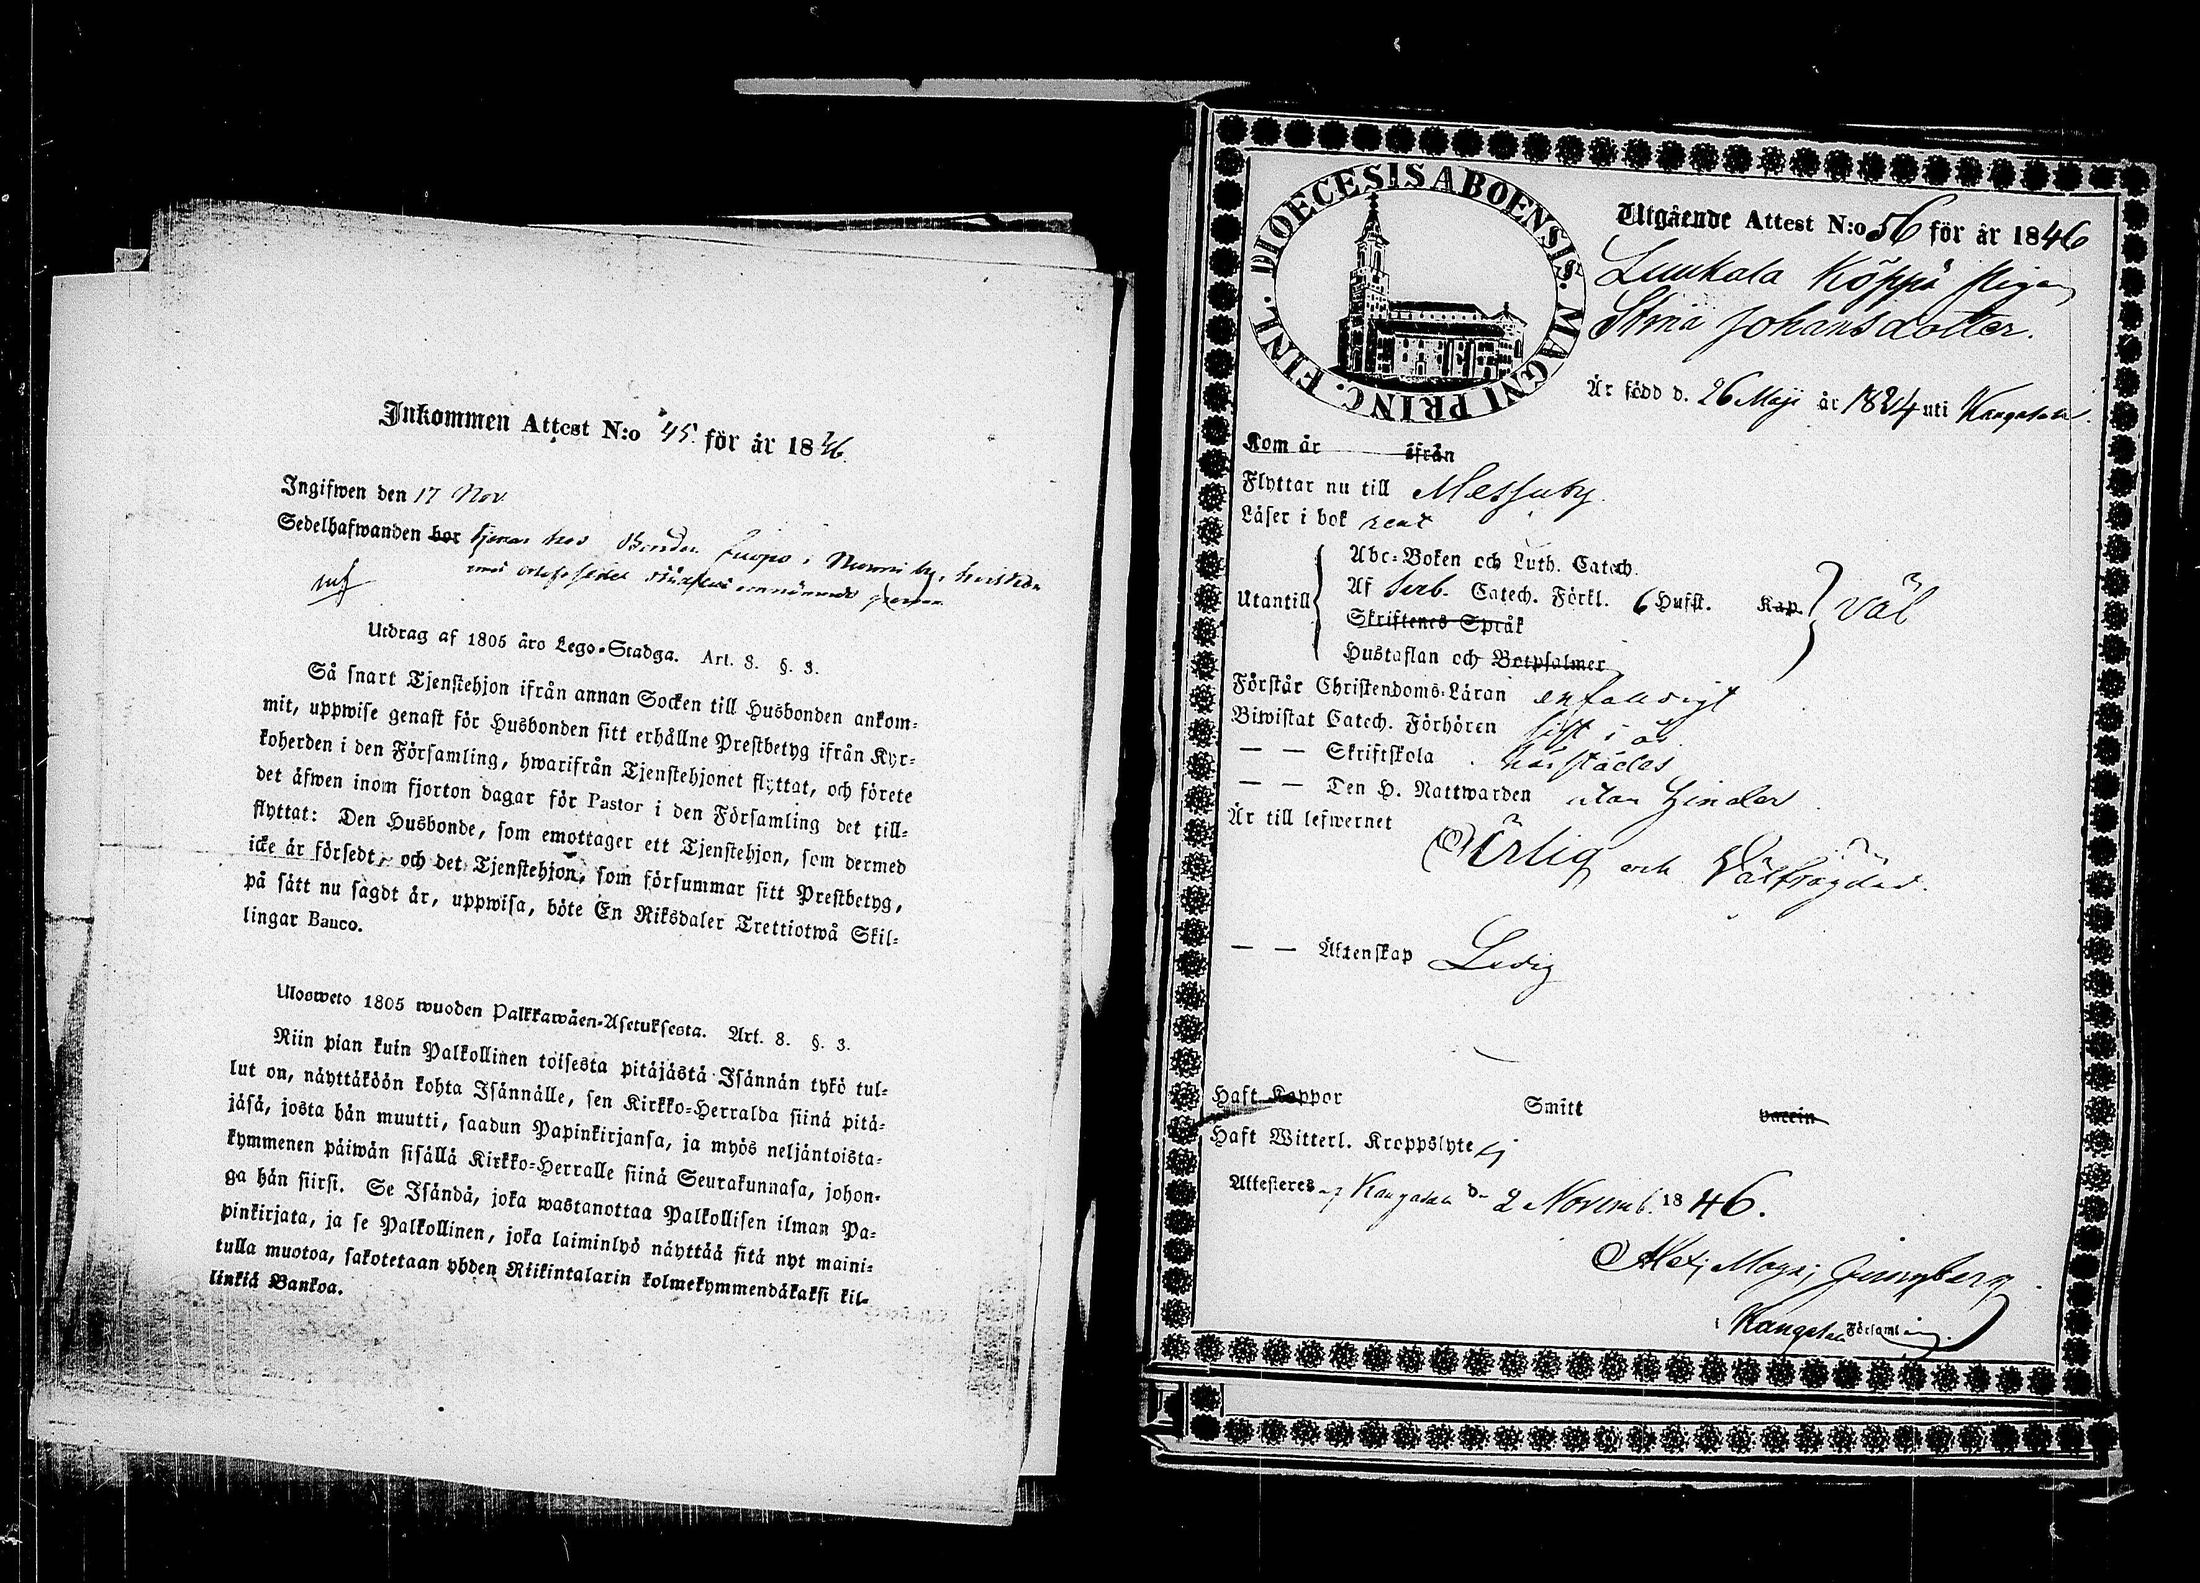 Inkommen Attest N:o 45. för år 1846.
Ingifwen den 17 Nov.
Sedelhafwanden bor tjenar hos Bonden Juopo i Nurmi by, hvilken
med orlofssedel
Utdrag af 1805 åro Lego-Stadga. Art. 8. §. 3.
Så snart Tjenstehjon ifrån annan Socken till Husbonden ankom-
mit, uppwise genast för Husbonden sitt erhållne Prestbetyg ifrån Kyr-
koherden i den Församling, hwarifrån Tjenstehjonet flyttat, och förete
det äfwen inom fjorton dagar för Pastor i den Församling det till-
flyttat: Den Husbonde, som emottager ett Tjenstehjon, som dermed
icke är försedt, och det Tjenstehjon, som försummar sitt Prestbetyg,
på sätt nu sagdt är, uppwisa, böte En Riksdaler Trettiotwå Skil-
lingar Banco.
Ulosweto 1805 wuoden Palkkawäen-Asetuksesta. Art. 8. §. 3.
Niin pian kuin Palkollinen toisesta pitäjästä Isännän tykö tul-
lut on, näyttäköön kohta Isännälle, sen Kirkko-Herralda siinä pitä-
jäsä, josta hän muutti, saadun Papinkirjansa, ja myös neljäntoista-
kymmenen päiwän sisällä Kirkko-Herralle siinä Seurakunnasa, johon-
ga hän siirsi. Se Isändä, joka wastanottaa Palkollisen ilman Pa-
pinkirjata, ja se Palkollinen, joka laiminlyö näyttää sitä nyt maini-
tulla muotoa, sakotetaan yhden Riikintalarin kolmekymmendäkaksi kil-
linkiä Bankoa.
DIOECESIS ABOENSIS. MAGNI PRINC. FINL.
Utgående Attest N:o 56 för år 1846
Luukala Köppä Pigan
Stina Johansdotter.
Är född d. 26 Maji år 1824 uti Kangasala.
Kom år ifrån
Flyttar nu till Messuby.
Läser i bok rent
Abc-Boken och Luth. Catech.
Utantill Af Sveb. Catech. Förkl. 6 Hufst. Kap. Väl
Skriftenes Språk
Hustaflan och Botpsalmer
Förstår Christendoms-Läran enfaldigt
Biwistat Catech. Förhören sist i år
— — Skriftskola härstädes
— — Den H. Nattwarden utan hinder
Är till lefwernet Ärlig och Välfrägdad.
— — Äktenskap Ledig
Haft Koppor Smitt vaccin
Haft Witterl. Kroppslyte ej
Attesteres af Kangasala d. 2 Novemb. 1846.
Alex: Magn: Ljungberg
i Kangasala Församling.